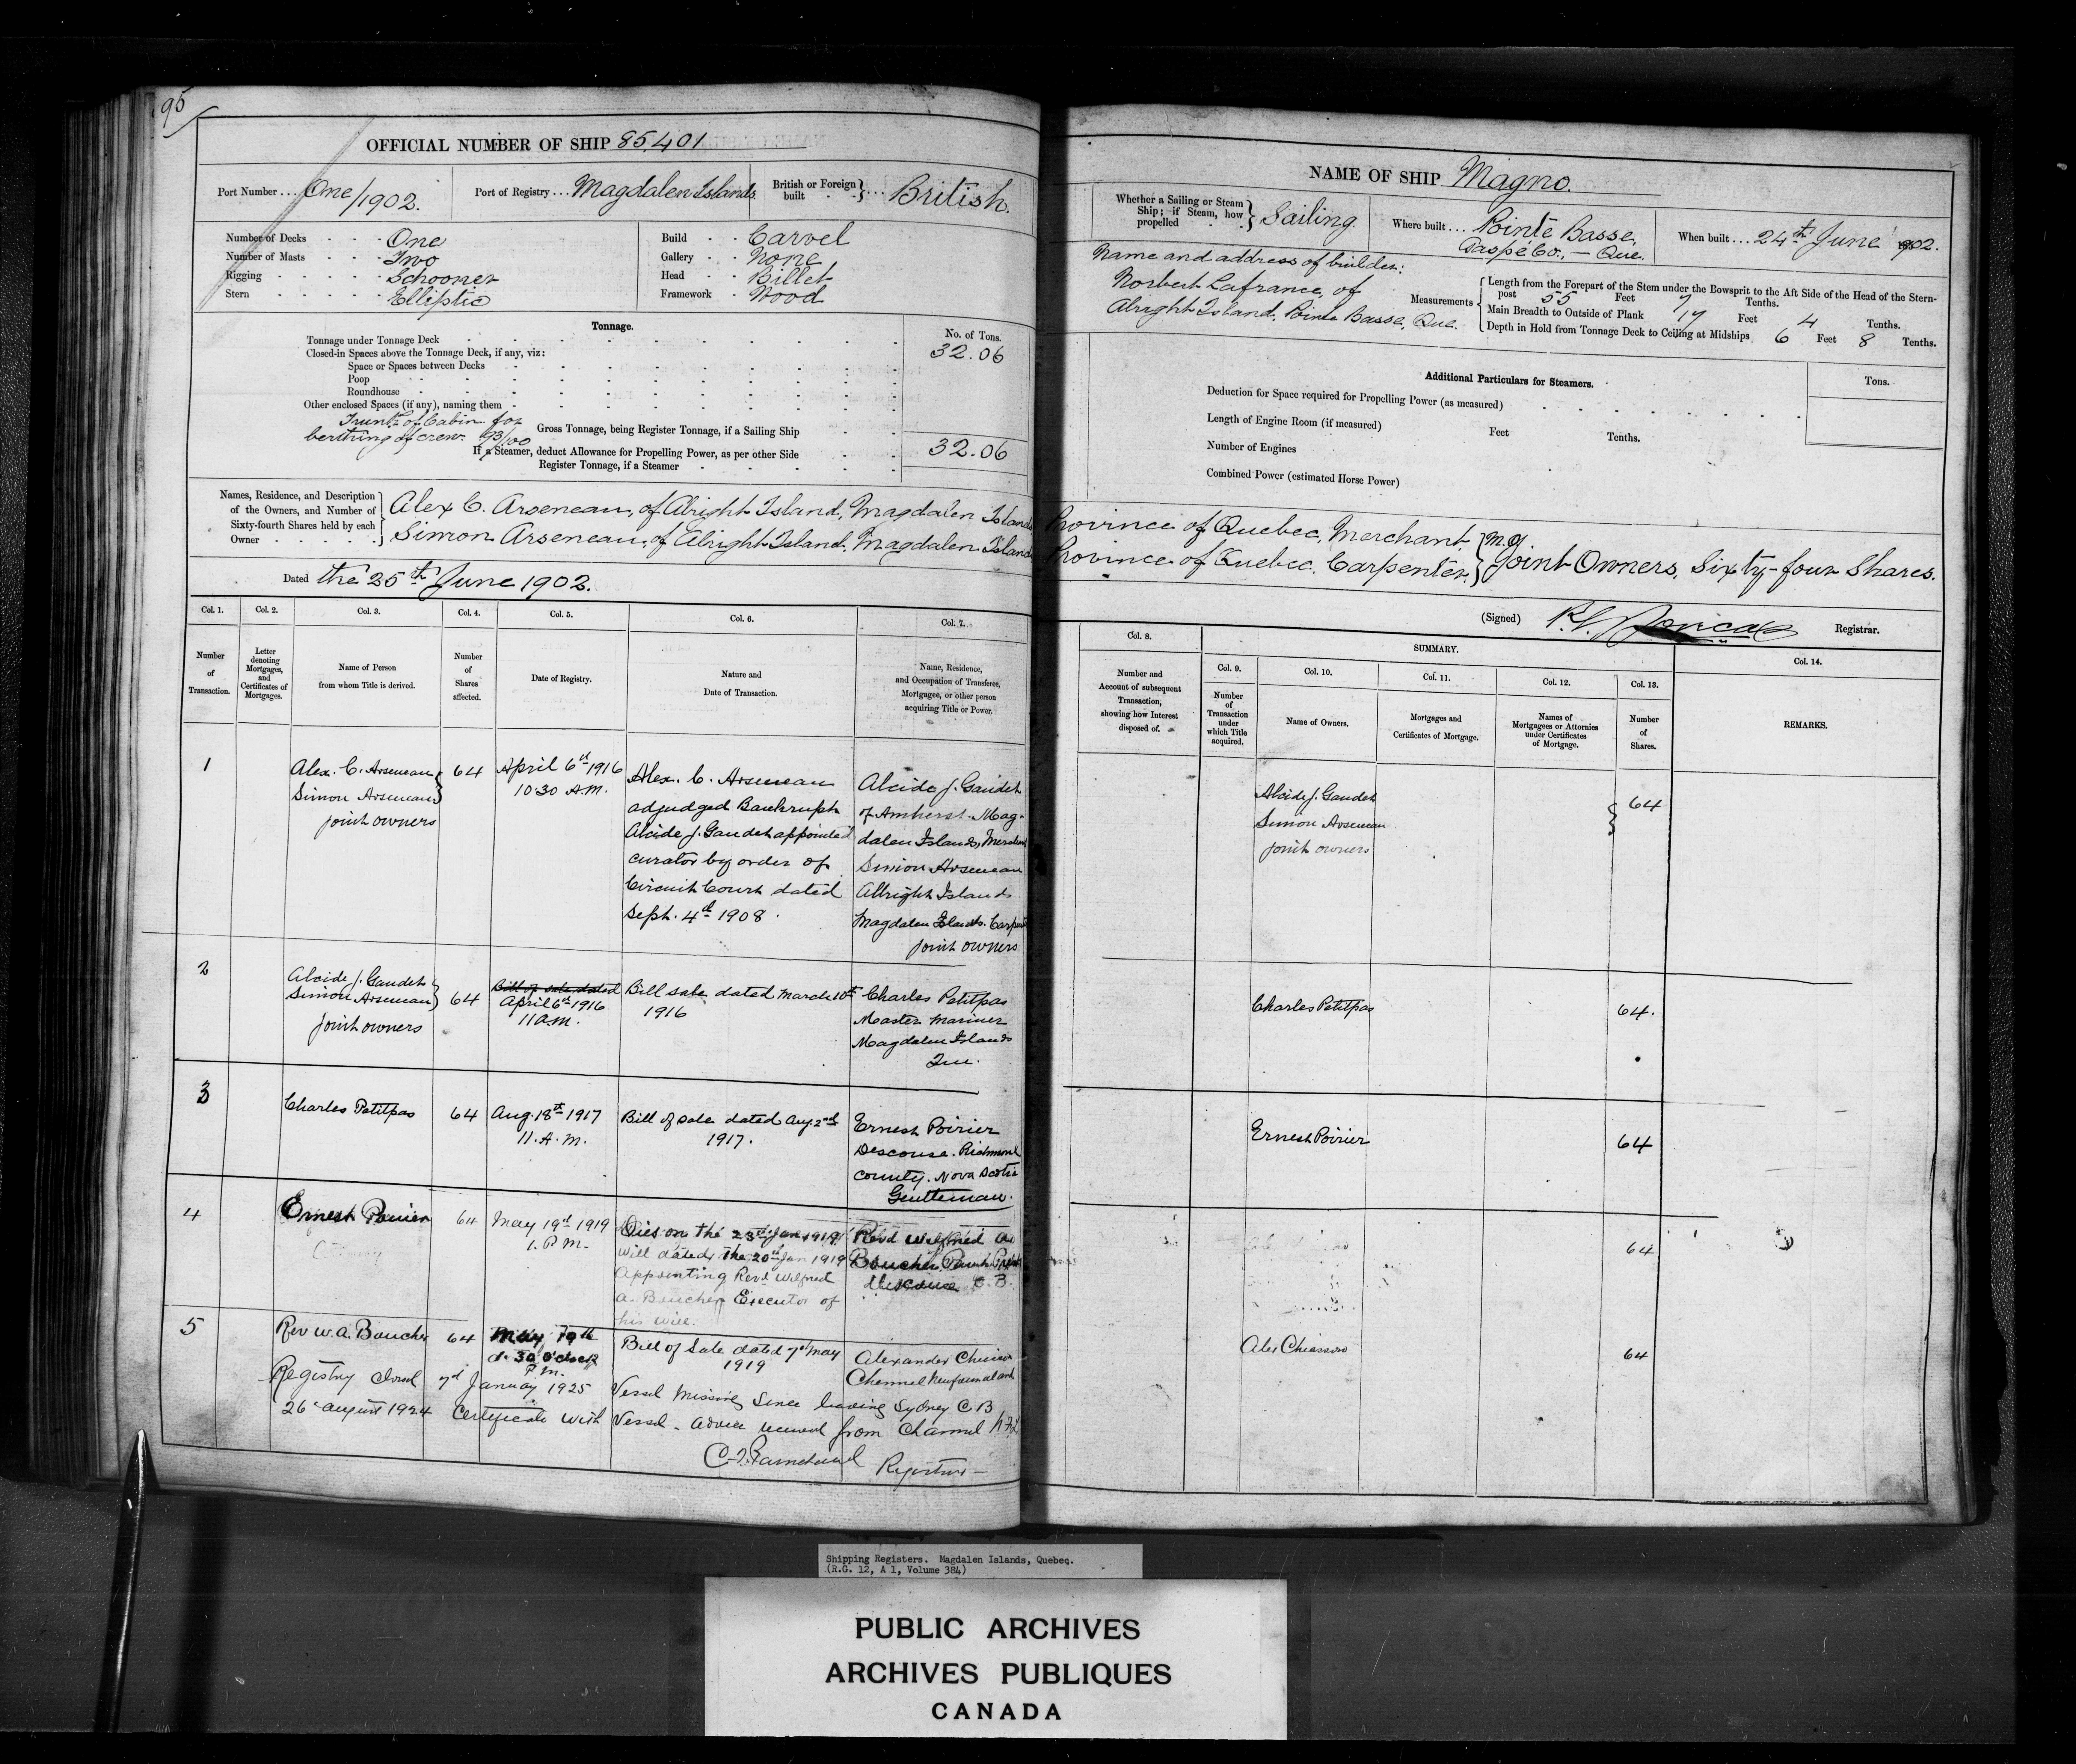 95
OFFICIAL NUMBER OF SHIP 85,401
Port Number ... One/1902.
Port of Registry ... Magdalen Islands
British or Foreign built } ... British.
Number of Decks One
Number of Masts Two
Rigging Schooner
Stern Elliptic
Build Carvel
Gallery None
Head Billet
Framework Wood
Tonnage.
No. of Tons.
Tonnage under Tonnage Deck 32.06
Closed-in Spaces above the Tonnage Deck, if any, viz:
Space or Spaces between Decks
Poop
Roundhouse
Other enclosed Spaces (if any), naming them
Trunk of Cabin for
berthing of crew. 93/100
Gross Tonnage, being Register Tonnage, if a Sailing Ship 32.06
If a Steamer, deduct Allowance for Propelling Power, as per other Side
Register Tonnage, if a Steamer
Names, Residence, and Description of the Owners, and Number of Sixty-fourth Shares held by each Owner
Alex C. Arseneau, of Alright Island, Magdalen Islands
Simon Arseneau, of Alright Island, Magdalen Islands
Dated the 25th June 1902.
Col. 1. Col. 2. Col. 3. Col. 4. Col. 5. Col. 6. Col. 7.
Number of Transaction.
Letter denoting Mortgages, and Certificates of Mortgages.
Name of Person from whom Title is derived.
Number of Shares affected.
Date of Registry.
Nature and Date of Transaction.
Name, Residence, and Occupation of Transferee, Mortgagee, or other person acquiring Title or Power.
1
Alex. C. Arseneau
Simon Arseneau
joint owners
64
April 6th 1916
10 30 A.M.
Alex. C. Arseneau
adjudged Bankrupt
Alcide J. Gaudet appointed
curator by order of
Circuit Court dated
Sept. 4th 1908.
Alcide J. Gaudet
of Amherst. Mag-
dalen Islands,
Simon Arseneau
Allright Islands
Magdalen Islands.
joint owners
2
Alcide J. Gaudet
Simon Arseneau
joint owners
64
Bill of sale dated
April 6th 1916
11 A.M.
Bill sale dated March 10th
1916
Charles Petitpas
Master Mariner
Magdalen Islands
Que.
3
Charles Petitpas
64
Aug. 18th 1917
11. A. M.
Bill of sale dated Aug. 2nd
1917.
Ernest Poirier
Descouse. Richmond
County. Nova Scotia
Gentleman.
4
Ernest Poirier
64
May 19th 1919
1. P M.
Dies on the 23rd Jan 1919
will dated the 20th Jan 1919
Appointing Revd Wilfred
A. Boucher Executor of
his will.
Revd Wilfred A.
Boucher, Parish Priest
Descouse C. B.
5
Rev W. A. Boucher
64
May 19th
P.M.
Bill of Sale dated 7th May
1919
Alexander Chiasson
Channel Newfoundland
Registry closed 7th January 1925 Vessel Missing Since leaving Sydney C B
26 August 1924 Certificate with Vessel - advice received from Channel Nfld
Registrar
NAME OF SHIP Magno.
Whether a Sailing or Steam Ship; if Steam, how propelled } Sailing.
Where built ... Pointe Basse,
Gaspé Co., — Que.
When built ... 24th June 1902.
Name and address of builder:
Norbert Lafrance, of
Alright Island, Pointe Basse, Que.
Measurements
Length from the Forepart of the Stem under the Bowsprit to the Aft Side of the Head of the Stern-
post 55 Feet 7 Tenths.
Main Breadth to Outside of Plank 17 Feet 4 Tenths.
Depth in Hold from Tonnage Deck to Ceiling at Midships 6 Feet 8 Tenths.
Additional Particulars for Steamers.
Tons.
Deduction for Space required for Propelling Power (as measured)
Length of Engine Room (if measured) Feet Tenths.
Number of Engines
Combined Power (estimated Horse Power)
Province of Quebec, Merchant,
Province of Quebec. Carpenter.
Joint Owners, Sixty-four Shares.
(Signed) Registrar.
Col. 8.
SUMMARY.
Col. 9. Col. 10. Col. 11. Col. 12. Col. 13. Col. 14.
Number and Account of subsequent Transaction, showing how Interest disposed of.
Number of Transaction under which Title acquired.
Name of Owners.
Mortgages and Certificates of Mortgage.
Names of Mortgagees or Attornies under Certificates of Mortgage.
Number of Shares.
REMARKS.
Alcide J. Gaudet
Simon Arseneau
joint owners
64
Charles Petitpas 64.
Ernest Poirier 64
64
Alex Chiasson 64
Shipping Registers. Magdalen Islands, Quebec.
(R.G. 12, A 1, Volume 384)
PUBLIC ARCHIVES
ARCHIVES PUBLIQUES
CANADA